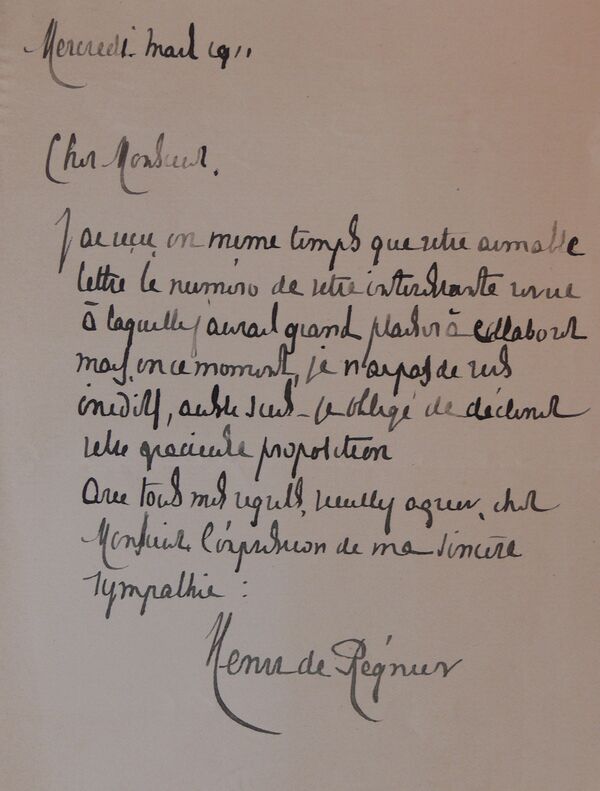 Mercredi. mars 1911
Cher Monsieur,
J'ai reçu en même temps que votre aimable
lettre le numéro de votre intéressante revue
à laquelle j'aurais grand plaisir à collaborer
mais, en ce moment, je n'ai pas de vers
inédits, aussi suis-je obligé de décliner
votre gracieuse proposition
Avec tous mes regrets, veuillez agréer, cher
Monsieur, l'expression de ma sincère
sympathie :
Henri de Régnier